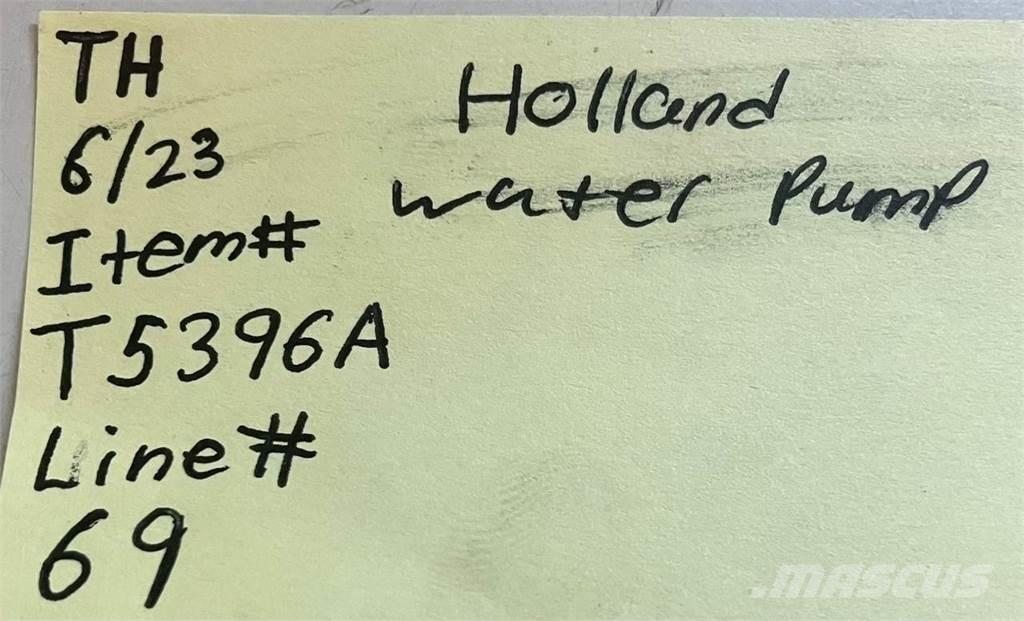 TH
6/23
Item#
T5396A
Line#
69
Holland
water Pump
mascus